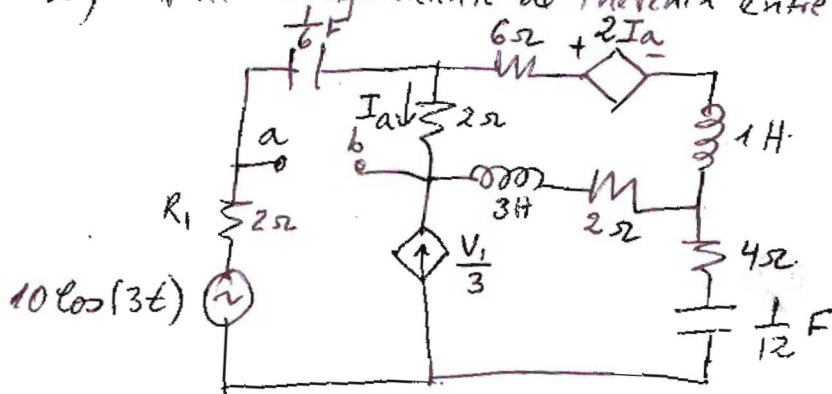 de Thevenin entre
1/6 F
6Ω + 2Ia -
Ia 2Ω 1H
a b
R1 2Ω 3H 2Ω 4Ω
10 cos(3t) V1/3 1/12 F